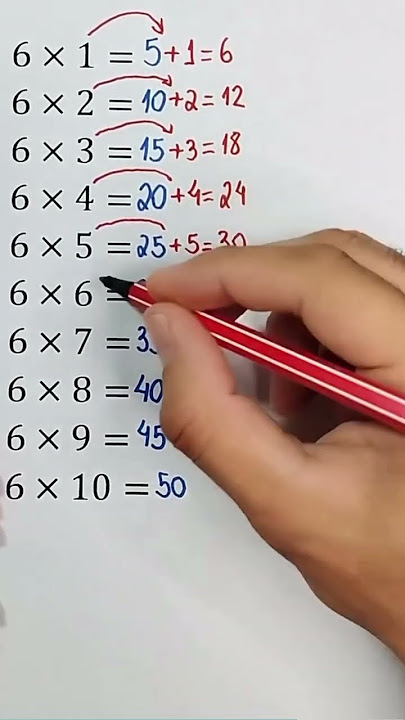 6 × 1 = 5+1=6
6 × 2 = 10+2=12
6 × 3 = 15+3=18
6 × 4 = 20+4=24
6 × 5 = 25+5=30
6 × 6 =
6 × 7 = 3
6 × 8 = 40
6 × 9 = 45
6 × 10 = 50